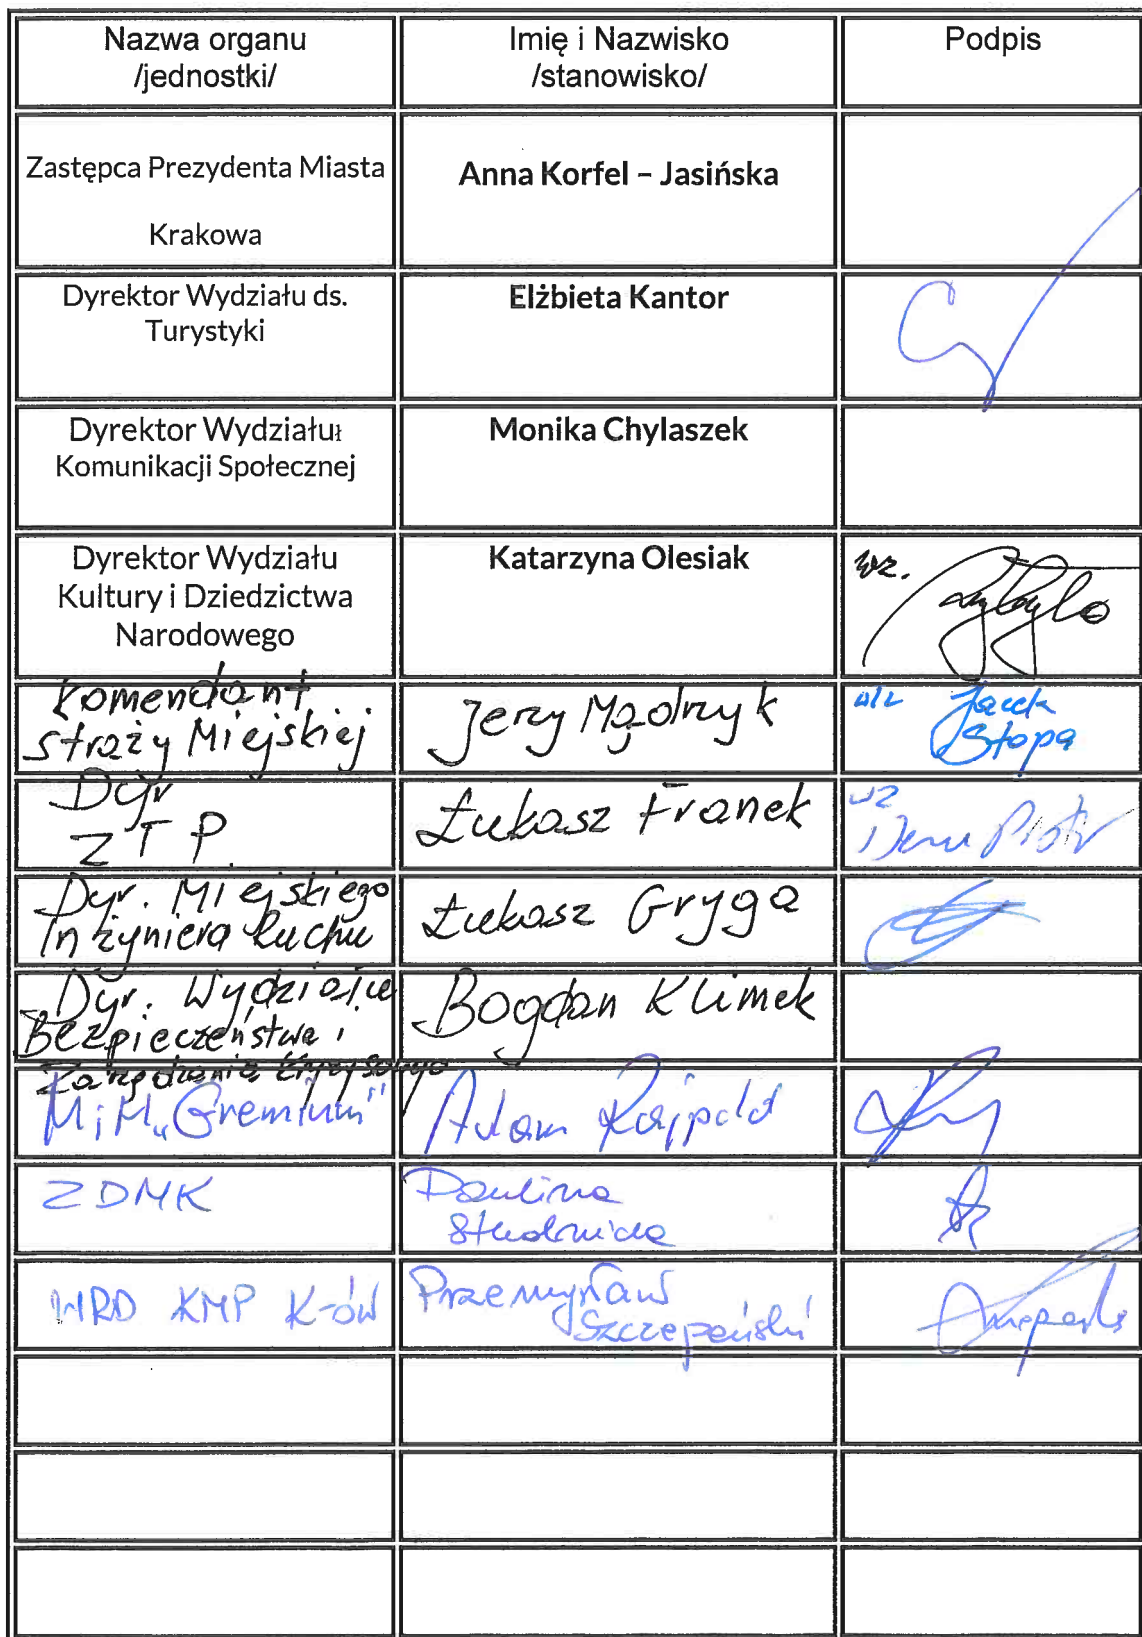 Nazwa organu
/jednostki/
Imię i Nazwisko
/stanowisko/
Podpis
Zastępca Prezydenta Miasta
Krakowa
Anna Korfel – Jasińska
Dyrektor Wydziału ds.
Turystyki
Elżbieta Kantor
Dyrektor Wydziału
Komunikacji Społecznej
Monika Chylaszek
Dyrektor Wydziału
Kultury i Dziedzictwa
Narodowego
Katarzyna Olesiak
wz.
Komendant
Straży Miejskiej
Jerzy Mądrzyk
w/z Jacek
Stopa
Dyr
ZTP.
Łukasz Franek
wz
Piotr
Dyr. Miejskiego
Inżyniera Ruchu
Łukasz Gryga
Dyr. Wydziału
Bezpieczeństwa i
Zarządzania Kryzysowego
Bogdan Klimek
MiM „Gremium"
Adam Rajpold
ZDMK
Paulina
Studnicka
WRD KMP K-ów
Przemysław
Szczepański